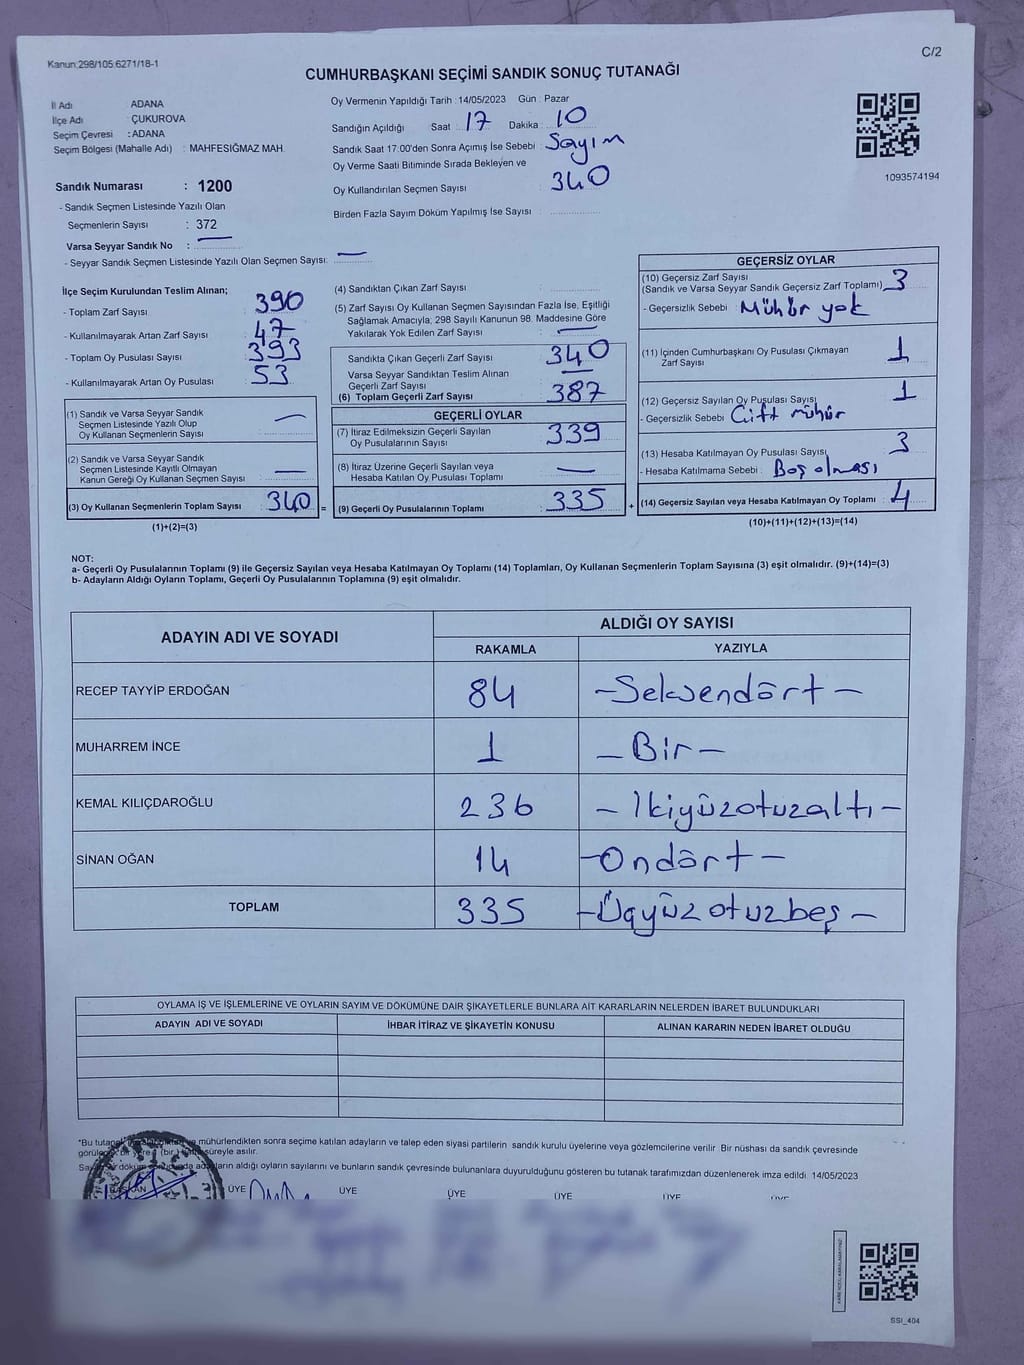 C/2
Kanun:298/105:6271/18-1
CUMHURBAŞKANI SEÇİMİ SANDIK SONUÇ TUTANAĞI
İl Adı ADANA
İlçe Adı : ÇUKUROVA
Seçim Çevresi : ADANA
Seçim Bölgesi (Mahalle Adı) : MAHFESIĞMAZ MAH.
Sandık Numarası : 1200
- Sandık Seçmen Listesinde Yazılı Olan
Seçmenlerin Sayısı : 372
Varsa Seyyar Sandık No : —
- Seyyar Sandık Seçmen Listesinde Yazılı Olan Seçmen Sayısı: —
Oy Vermenin Yapıldığı Tarih : 14/05/2023 Gün : Pazar
Sandığın Açıldığı Saat : 17 Dakika : 10
Sandık Saat 17:00'den Sonra Açımış İse Sebebi : Sayım
Oy Verme Saati Bitiminde Sırada Bekleyen ve
Oy Kullandırılan Seçmen Sayısı : 340
Birden Fazla Sayım Döküm Yapılmış İse Sayısı :
1093574194
İlçe Seçim Kurulundan Teslim Alınan;
- Toplam Zarf Sayısı : 390
- Kullanılmayarak Artan Zarf Sayısı : 47
- Toplam Oy Pusulası Sayısı : 393
- Kullanılmayarak Artan Oy Pusulası : 53
(1) Sandık ve Varsa Seyyar Sandık
Seçmen Listesinde Yazılı Olup
Oy Kullanan Seçmenlerin Sayısı : —
(2) Sandık ve Varsa Seyyar Sandık
Seçmen Listesinde Kayıtlı Olmayan
Kanun Gereği Oy Kullanan Seçmen Sayısı : —
(3) Oy Kullanan Seçmenlerin Toplam Sayısı : 340 =
(1)+(2)=(3)
(4) Sandıktan Çıkan Zarf Sayısı :
(5) Zarf Sayısı Oy Kullanan Seçmen Sayısından Fazla İse, Eşitliği
Sağlamak Amacıyla; 298 Sayılı Kanunun 98. Maddesine Göre
Yakılarak Yok Edilen Zarf Sayısı : —
Sandıkta Çıkan Geçerli Zarf Sayısı : 340
Varsa Seyyar Sandıktan Teslim Alınan
Geçerli Zarf Sayısı : —
(6) Toplam Geçerli Zarf Sayısı : 387
GEÇERLİ OYLAR
(7) İtiraz Edilmeksizin Geçerli Sayılan
Oy Pusulalarının Sayısı : 339
(8) İtiraz Üzerine Geçerli Sayılan veya
Hesaba Katılan Oy Pusulası Toplamı : —
(9) Geçerli Oy Pusulalarının Toplamı : 335 +
GEÇERSİZ OYLAR
(10) Geçersiz Zarf Sayısı
(Sandık ve Varsa Seyyar Sandık Geçersiz Zarf Toplamı) : 3
- Geçersizlik Sebebi : Mühür yok
(11) İçinden Cumhurbaşkanı Oy Pusulası Çıkmayan
Zarf Sayısı : 1
(12) Geçersiz Sayılan Oy Pusulası Sayısı : 1
- Geçersizlik Sebebi : Çift mühür
(13) Hesaba Katılmayan Oy Pusulası Sayısı : 3
- Hesaba Katılmama Sebebi : Boş olması
(14) Geçersiz Sayılan veya Hesaba Katılmayan Oy Toplamı : 4
(10)+(11)+(12)+(13)=(14)
NOT:
a- Geçerli Oy Pusulalarının Toplamı (9) ile Geçersiz Sayılan veya Hesaba Katılmayan Oy Toplamı (14) Toplamları, Oy Kullanan Seçmenlerin Toplam Sayısına (3) eşit olmalıdır. (9)+(14)=(3)
b- Adayların Aldığı Oyların Toplamı, Geçerli Oy Pusulalarının Toplamına (9) eşit olmalıdır.
ADAYIN ADI VE SOYADI ALDIĞI OY SAYISI
RAKAMLA YAZIYLA
RECEP TAYYİP ERDOĞAN 84 -Seksendört-
MUHARREM İNCE 1 -Bir-
KEMAL KILIÇDAROĞLU 236 -İkiyüzotuzaltı-
SİNAN OĞAN 14 -Ondört-
TOPLAM 335 -Üçyüzotuzbeş-
OYLAMA İŞ VE İŞLEMLERİNE VE OYLARIN SAYIM VE DÖKÜMÜNE DAİR ŞİKAYETLERLE BUNLARA AİT KARARLARIN NELERDEN İBARET BULUNDUKLARI
ADAYIN ADI VE SOYADI İHBAR İTİRAZ VE ŞİKAYETİN KONUSU ALINAN KARARIN NEDEN İBARET OLDUĞU
*Bu mühürlendikten sonra seçime katılan adayların ve talep eden siyasi partilerin sandık kurulu üyelerine veya gözlemcilerine verilir. Bir nüshası da sandık çevresinde
süreyle asılır.
aldığı oyların sayılarını ve bunların sandık çevresinde bulunanlara duyurulduğunu gösteren bu tutanak tarafımızdan düzenlenerek imza edildi. 14/05/2023
BAŞKAN ÜYE ÜYE ÜYE ÜYE ÜYE
SSI_404